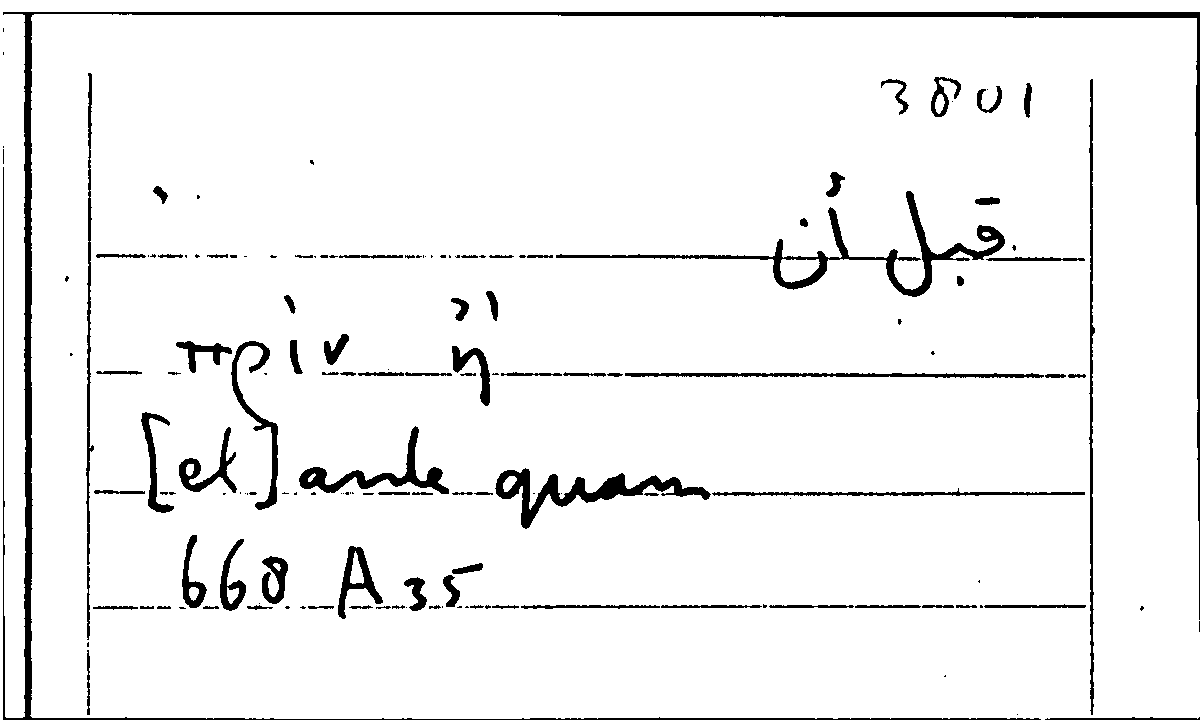 3801
قبل أن
πρὶν ἢ
[et] ante quam
668 A 35